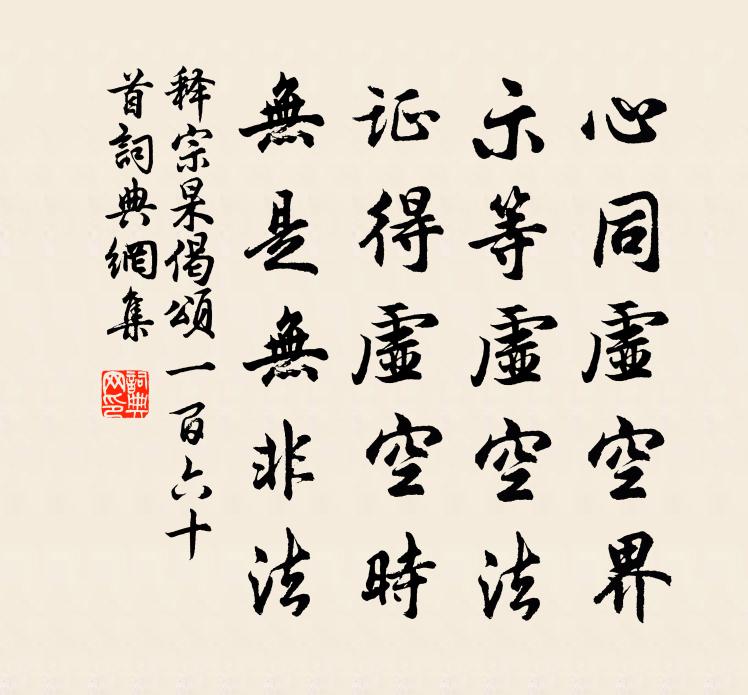 心同虛空界
示等虛空法
证得虛空時
無是無非法
释宗杲偈頌一百六十
首詞典網集
詞典网印